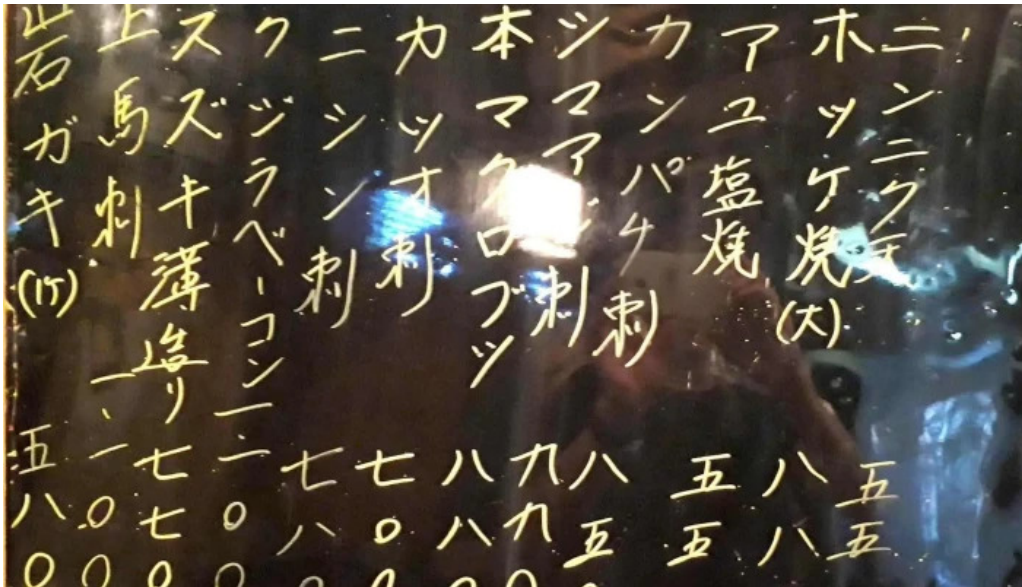 ニンニク天 五五
ホッケ焼(大) 八八
アユ塩焼 五五
カンパチ刺 八五〇
シマアジ刺 九九〇
本マグロブツ 八八〇
カツオ刺 七〇〇
ニシン刺 七八〇
クジラベーコン 一、二〇〇
スズキ薄造り 七七〇
上馬刺 一、二〇〇
岩ガキ(1ケ) 五八〇